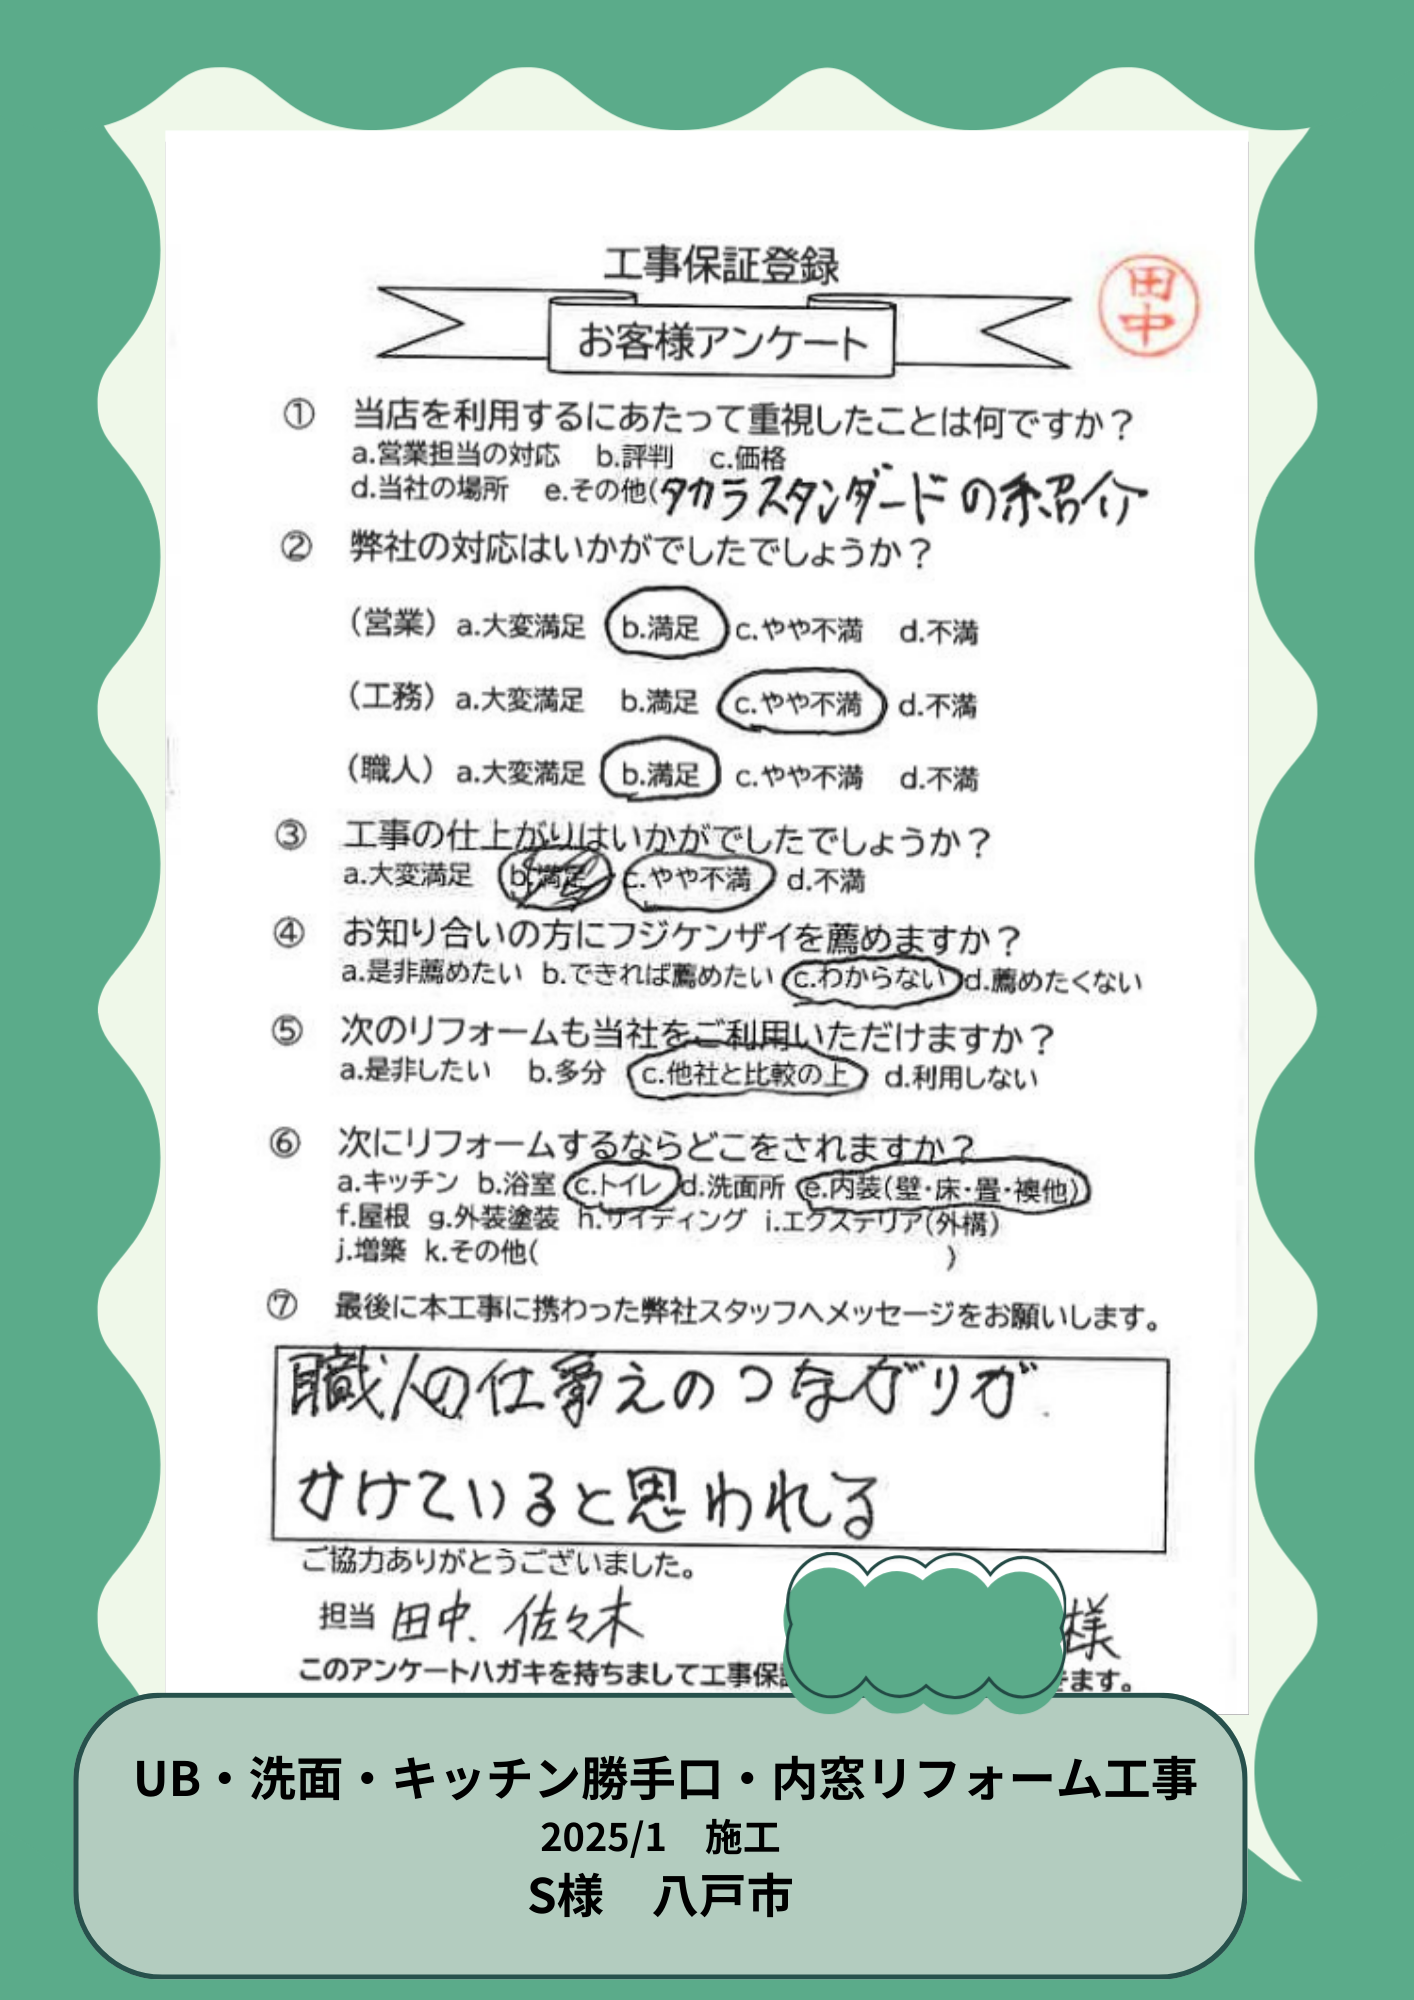 工事保証登録
お客様アンケート
田中
① 当店を利用するにあたって重視したことは何ですか？
a.営業担当の対応 b.評判 c.価格
d.当社の場所 e.その他(タカラスタンダードの紹介
② 弊社の対応はいかがでしたでしょうか？
（営業）a.大変満足 b.満足 c.やや不満 d.不満
（工務）a.大変満足 b.満足 c.やや不満 d.不満
（職人）a.大変満足 b.満足 c.やや不満 d.不満
③ 工事の仕上がりはいかがでしたでしょうか？
a.大変満足 b.満足 c.やや不満 d.不満
④ お知り合いの方にフジケンザイを薦めますか？
a.是非薦めたい b.できれば薦めたい c.わからない d.薦めたくない
⑤ 次のリフォームも当社をご利用いただけますか？
a.是非したい b.多分 c.他社と比較の上 d.利用しない
⑥ 次にリフォームするならどこをされますか？
a.キッチン b.浴室 c.トイレ d.洗面所 e.内装(壁・床・畳・襖他)
f.屋根 g.外装塗装 h.サイディング i.エクステリア(外構)
j.増築 k.その他( )
⑦ 最後に本工事に携わった弊社スタッフへメッセージをお願いします。
職人の仕事えのつながりが
かけていると思われる
ご協力ありがとうございました。
担当 田中、佐々木 様
このアンケートハガキを持ちまして工事保 きます。
UB・洗面・キッチン勝手口・内窓リフォーム工事
2025/1 施工
S様 八戸市